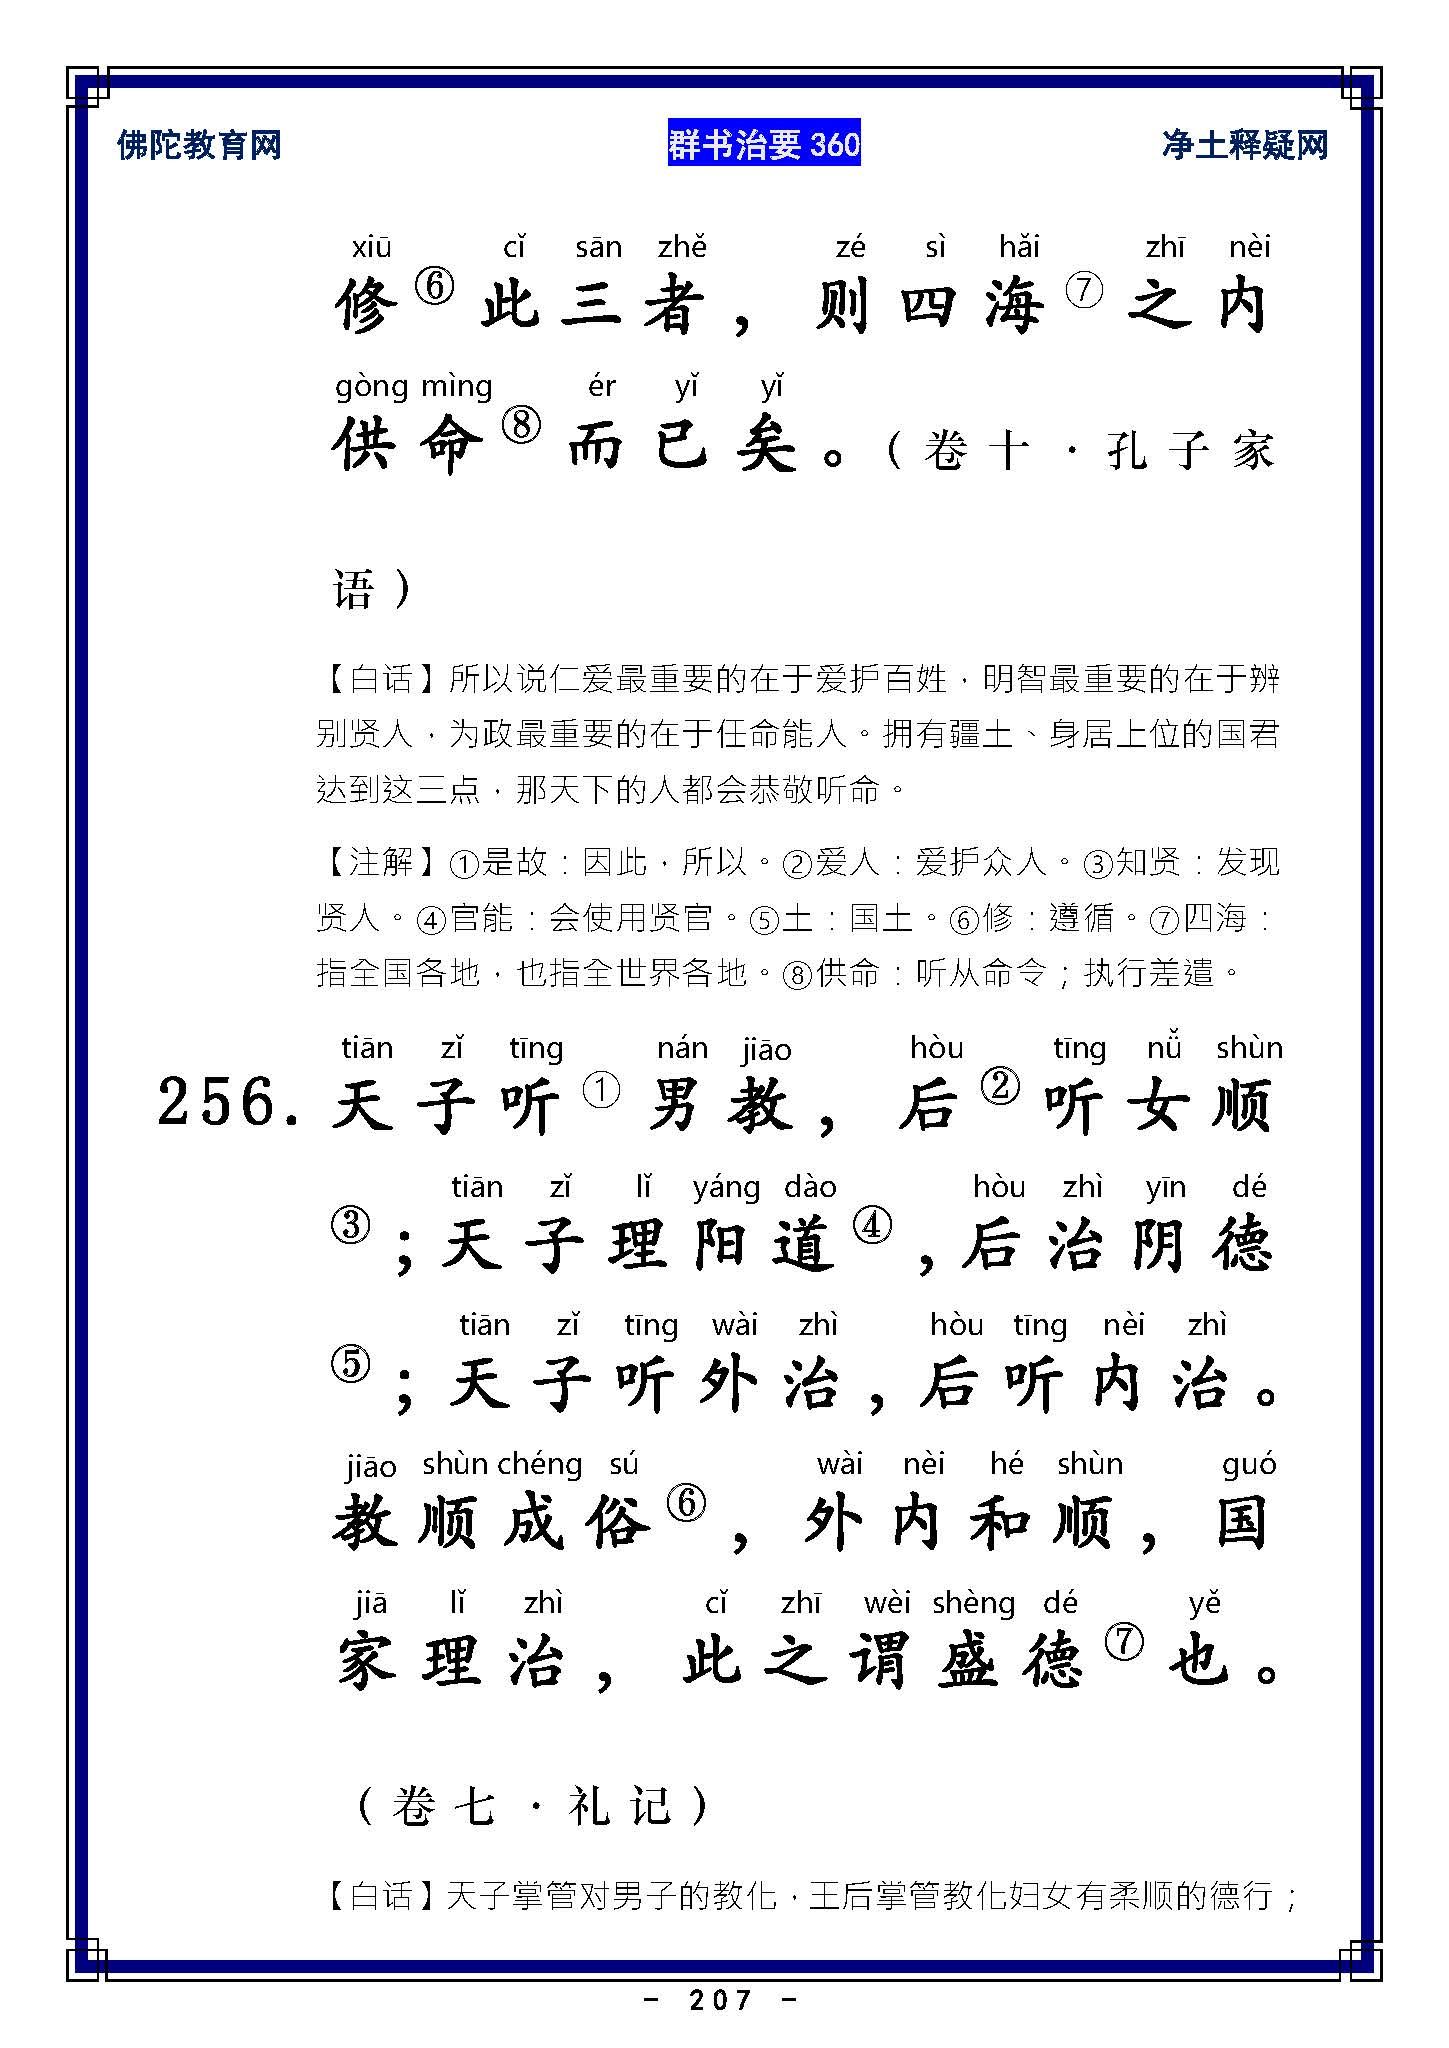 佛陀教育网 群书治要 360 净土释疑网
xiū cǐ sān zhě zé sì hǎi zhī nèi
修⑥此三者，则四海⑦之内
gòng mìng ér yǐ yǐ
供命⑧而已矣。（卷十·孔子家
语）
【白话】所以说仁爱最重要的在于爱护百姓，明智最重要的在于辨
别贤人，为政最重要的在于任命能人。拥有疆土、身居上位的国君
达到这三点，那天下的人都会恭敬听命。
【注解】①是故：因此，所以。②爱人：爱护众人。③知贤：发现
贤人。④官能：会使用贤官。⑤土：国土。⑥修：遵循。⑦四海：
指全国各地，也指全世界各地。⑧供命：听从命令；执行差遣。
tiān zǐ tīng nán jiāo hòu tīng nǚ shùn
256.天子听①男教，后②听女顺
tiān zǐ lǐ yáng dào hòu zhì yīn dé
③；天子理阳道④，后治阴德
tiān zǐ tīng wài zhì hòu tīng nèi zhì
⑤；天子听外治，后听内治。
jiāo shùn chéng sú wài nèi hé shùn guó
教顺成俗⑥，外内和顺，国
jiā lǐ zhì cǐ zhī wèi shèng dé yě
家理治，此之谓盛德⑦也。
（卷七·礼记）
【白话】天子掌管对男子的教化，王后掌管教化妇女有柔顺的德行；
- 207 -